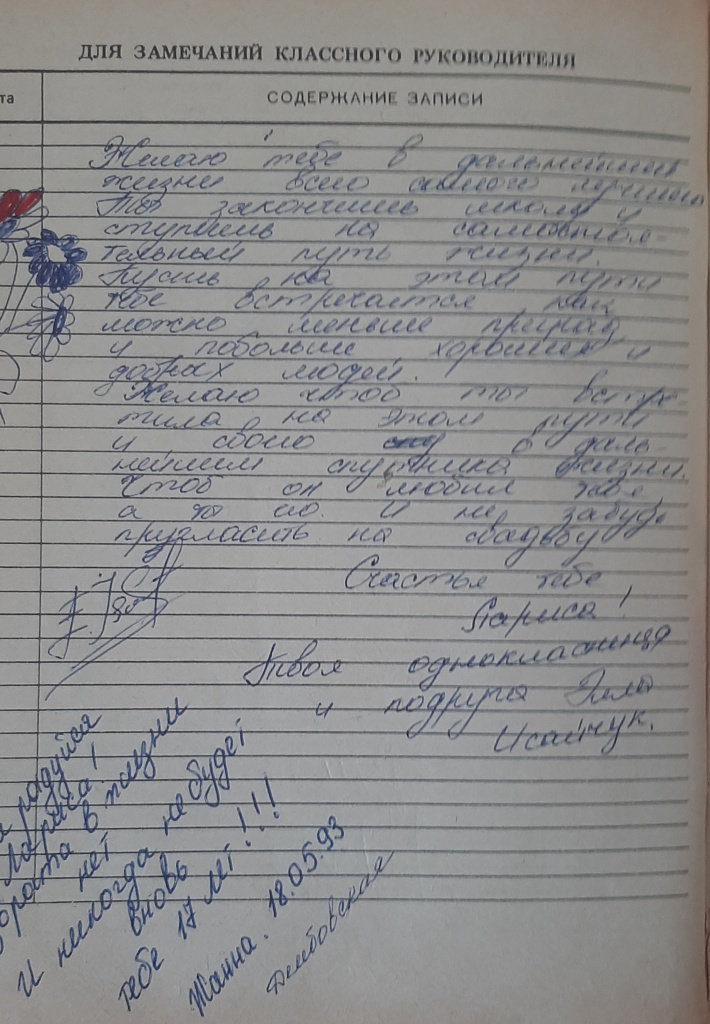 ДЛЯ ЗАМЕЧАНИЙ КЛАССНОГО РУКОВОДИТЕЛЯ
та
СОДЕРЖАНИЕ ЗАПИСИ
Желаю тебе в дальнейшей
жизни всего самого лучшего
Ты закончишь школу и
ступишь на самостоя-
тельный путь жизни.
Пусть на этом пути
тебе встречается как
можно меньше преград
и побольше хороших и
добрых людей.
Желаю чтоб ты встре-
тила на этом пути
и своего в даль-
нейшем спутника жизни.
Чтоб он любил тебя,
а ты его. И не забудь
пригласить на свадьбу
Счастья тебе
Лариса!
Твоя одноклассница
и подруга Элла
Исайчук.
радуйся
Лариса!
в жизни
нет
И никогда не будет
вновь
тебе 17 лет!!!
Жанна. 18.05.93
Дембовская